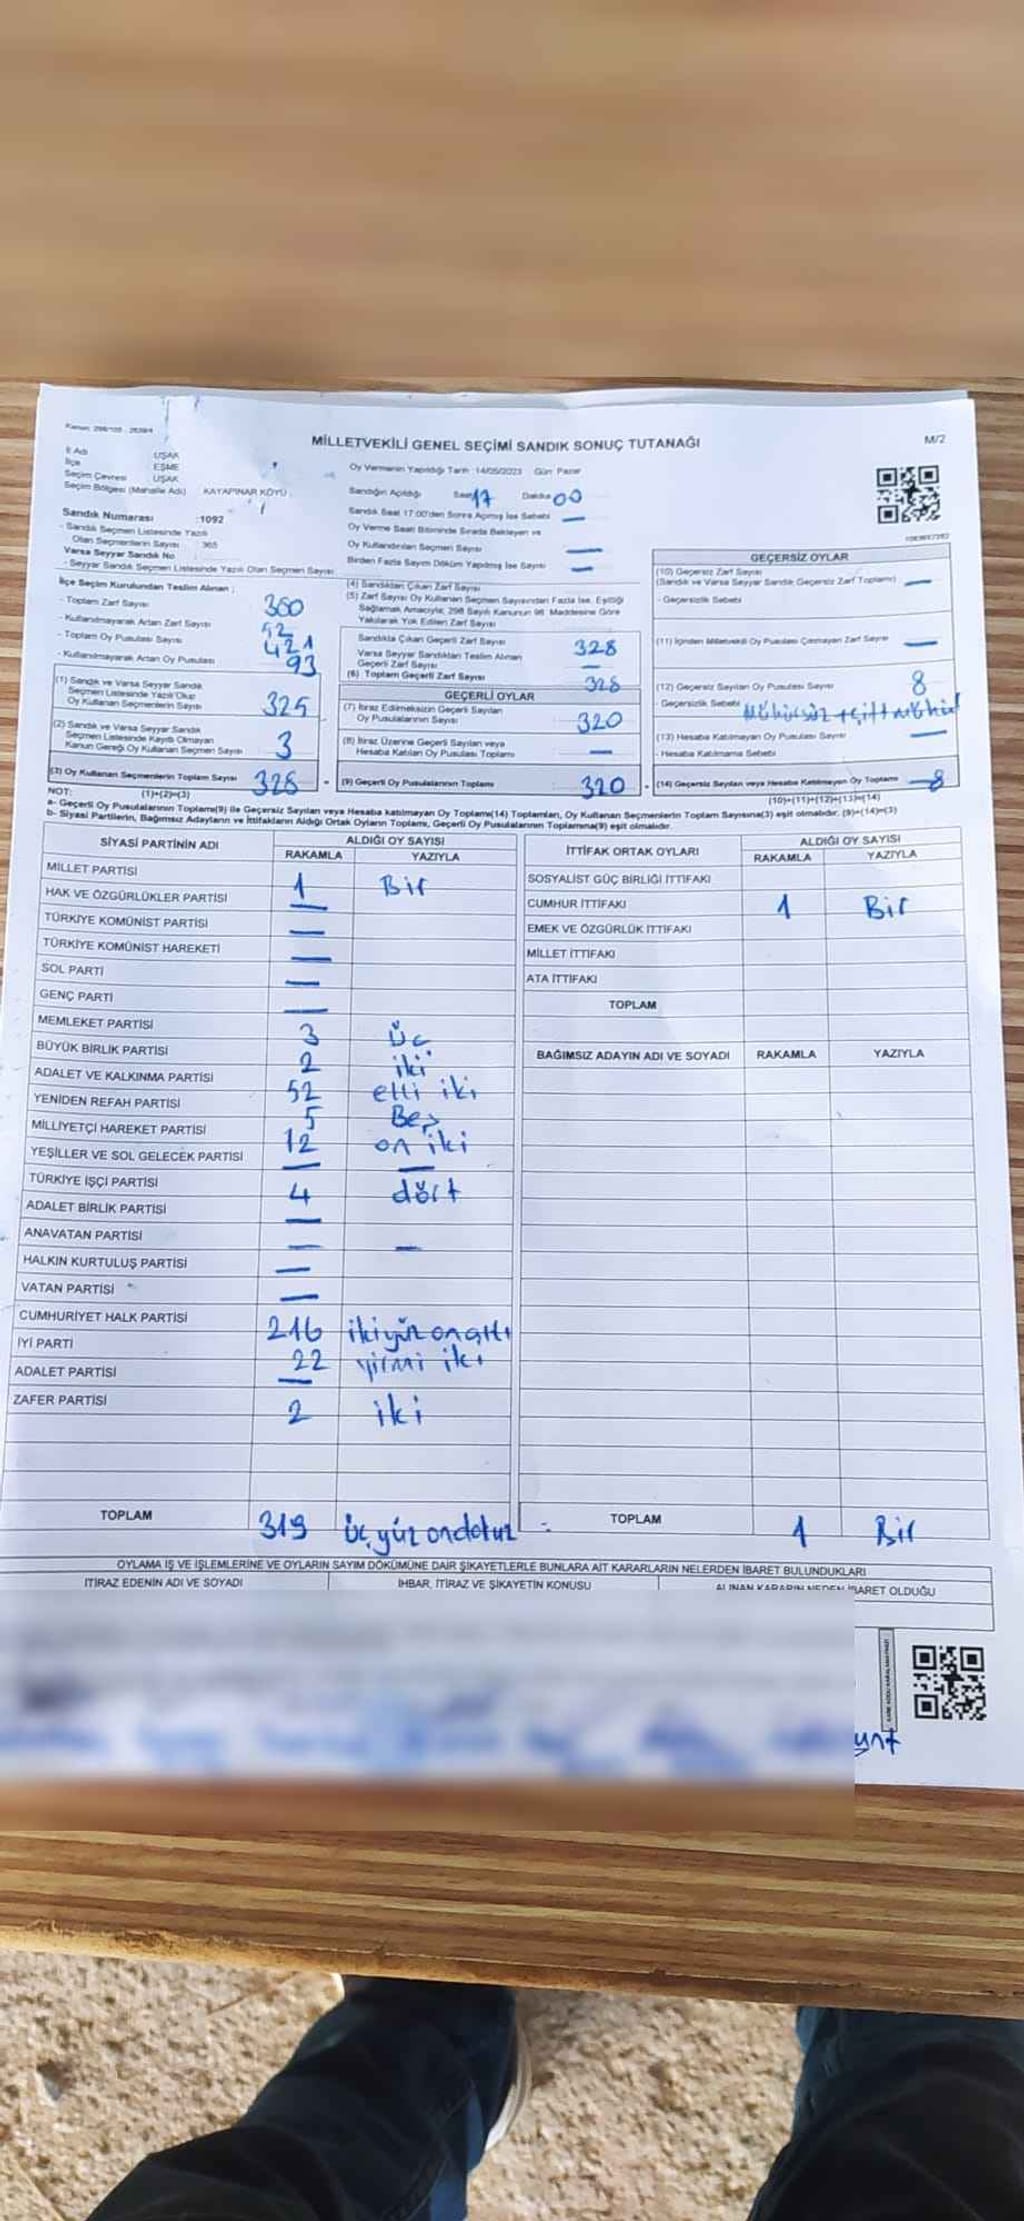 MİLLETVEKİLİ GENEL SEÇİMİ SANDIK SONUÇ TUTANAĞI
M/2
İl Adı UŞAK
İlçe EŞME
Seçim Çevresi UŞAK
Seçim Bölgesi (Mahalle Adı) KAYAPINAR KÖYÜ
Oy Vermenin Yapıldığı Tarih :14/05/2023 Gün Pazar
Sandığın Açıldığı Saat 17 Dakika 00
Sandık Saat 17:00'den Sonra Açılmış İse Sebebi —
Oy Verme Saati Bitiminde Sırada Bekleyen ve
Oy Kullandırılan Seçmen Sayısı —
Birden Fazla Sayım Döküm Yapılmış İse Sayısı —
Sandık Numarası :1092
- Sandık Seçmen Listesinde Yazılı
Olan Seçmenlerin Sayısı : 365
Varsa Seyyar Sandık No
- Seyyar Sandık Seçmen Listesinde Yazılı Olan Seçmen Sayısı
İlçe Seçim Kurulundan Teslim Alınan ;
- Toplam Zarf Sayısı 360
- Kullanılmayarak Artan Zarf Sayısı
- Toplam Oy Pusulası Sayısı 421
- Kullanılmayarak Artan Oy Pusulası 93
(1) Sandık ve Varsa Seyyar Sandık
Seçmen Listesinde Yazılı Olup
Oy Kullanan Seçmenlerin Sayısı 325
(2) Sandık ve Varsa Seyyar Sandık
Seçmen Listesinde Kayıtlı Olmayan
Kanun Gereği Oy Kullanan Seçmen Sayısı 3
(3) Oy Kullanan Seçmenlerin Toplam Sayısı 328
(1)+(2)=(3)
(4) Sandıktan Çıkan Zarf Sayısı
(5) Zarf Sayısı Oy Kullanan Seçmen Sayısından Fazla İse, Eşitliği
Sağlamak Amacıyla; 298 Sayılı Kanunun 98. Maddesine Göre
Yakılarak Yok Edilen Zarf Sayısı
Sandıkta Çıkan Geçerli Zarf Sayısı 328
Varsa Seyyar Sandıktan Teslim Alınan
Geçerli Zarf Sayısı —
(6) Toplam Geçerli Zarf Sayısı 328
GEÇERLİ OYLAR
(7) İtiraz Edilmeksizin Geçerli Sayılan
Oy Pusulalarının Sayısı 320
(8) İtiraz Üzerine Geçerli Sayılan veya
Hesaba Katılan Oy Pusulası Toplamı —
(9) Geçerli Oy Pusulalarının Toplamı 320
GEÇERSİZ OYLAR
(10) Geçersiz Zarf Sayısı
(Sandık ve Varsa Seyyar Sandık Geçersiz Zarf Toplamı) —
- Geçersizlik Sebebi
(11) İçinden Milletvekili Oy Pusulası Çıkmayan Zarf Sayısı —
(12) Geçersiz Sayılan Oy Pusulası Sayısı 8
- Geçersizlik Sebebi Mühürsüz + çift mühür
(13) Hesaba Katılmayan Oy Pusulası Sayısı —
- Hesaba Katılmama Sebebi
(14) Geçersiz Sayılan veya Hesaba Katılmayan Oy Toplamı 8
(10)+(11)+(12)+(13)=(14)
NOT:
a- Geçerli Oy Pusulalarının Toplamı(9) ile Geçersiz Sayılan veya Hesaba katılmayan Oy Toplamı(14) Toplamları, Oy Kullanan Seçmenlerin Toplam Sayısına(3) eşit olmalıdır. (9)+(14)=(3)
b- Siyasi Partilerin, Bağımsız Adayların ve İttifakların Aldığı Ortak Oyların Toplamı, Geçerli Oy Pusulalarının Toplamına(9) eşit olmalıdır.
SİYASİ PARTİNİN ADI ALDIĞI OY SAYISI
RAKAMLA YAZIYLA
MİLLET PARTİSİ 1 Bir
HAK VE ÖZGÜRLÜKLER PARTİSİ —
TÜRKİYE KOMÜNİST PARTİSİ —
TÜRKİYE KOMÜNİST HAREKETİ —
SOL PARTİ —
GENÇ PARTİ —
MEMLEKET PARTİSİ 3 üç
BÜYÜK BİRLİK PARTİSİ 2 iki
ADALET VE KALKINMA PARTİSİ 52 elli iki
YENİDEN REFAH PARTİSİ 5 Beş
MİLLİYETÇİ HAREKET PARTİSİ 12 on iki
YEŞİLLER VE SOL GELECEK PARTİSİ — —
TÜRKİYE İŞÇİ PARTİSİ 4 dört
ADALET BİRLİK PARTİSİ —
ANAVATAN PARTİSİ — —
HALKIN KURTULUŞ PARTİSİ —
VATAN PARTİSİ —
CUMHURİYET HALK PARTİSİ 216 ikiyüz onaltı
İYİ PARTİ 22 yirmi iki
ADALET PARTİSİ —
ZAFER PARTİSİ 2 iki
TOPLAM 319 üçyüz ondokuz
İTTİFAK ORTAK OYLARI ALDIĞI OY SAYISI
RAKAMLA YAZIYLA
SOSYALİST GÜÇ BİRLİĞİ İTTİFAKI
CUMHUR İTTİFAKI 1 Bir
EMEK VE ÖZGÜRLÜK İTTİFAKI
MİLLET İTTİFAKI
ATA İTTİFAKI
TOPLAM
BAĞIMSIZ ADAYIN ADI VE SOYADI RAKAMLA YAZIYLA
TOPLAM 1 Bir
OYLAMA İŞ VE İŞLEMLERİNE VE OYLARIN SAYIM DÖKÜMÜNE DAİR ŞİKAYETLERLE BUNLARA AİT KARARLARIN NELERDEN İBARET BULUNDUKLARI
İTİRAZ EDENİN ADI VE SOYADI İHBAR, İTİRAZ VE ŞİKAYETİN KONUSU ALINAN KARARIN NEDEN İBARET OLDUĞU